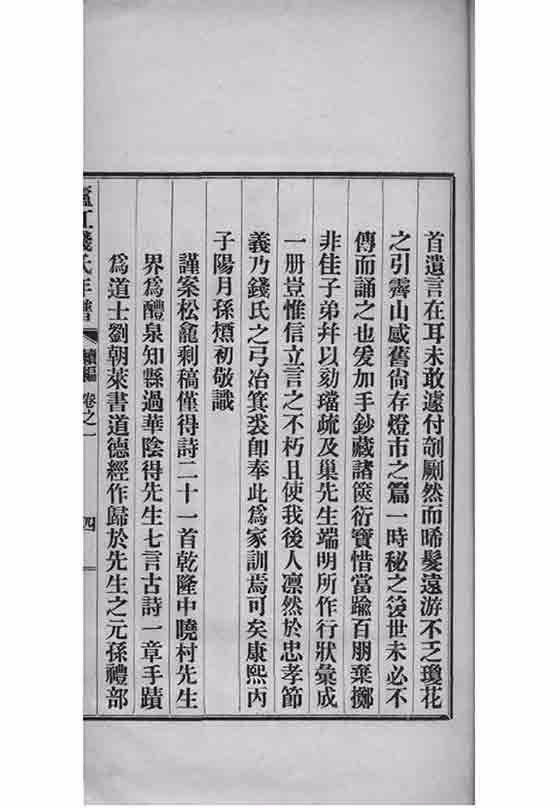 首遺言在耳未敢遽付剞劂然而晞髮遠游不乏瓊花
之引霽山感舊尙存燈市之篇一時秘之後世未必不
傳而誦之也爰加手鈔藏諸篋衍寶惜當踰百朋棄擲
非佳子弟幷以劾璫疏及巢先生端明所作行狀彙成
一册豈惟信立言之不朽且使我後人凛然於忠孝節
義乃錢氏之弓冶箕裘卽奉此爲家訓焉可矣康熙丙
子陽月孫煐初敬識
謹案松龕剩稿僅得詩二十一首乾隆中曉村先生
界爲醴泉知縣過華陰得先生七言古詩一章手蹟
爲道士劉朝萊書道德經作歸於先生之元孫禮部
廬江錢氏年譜 續編 卷之一 四